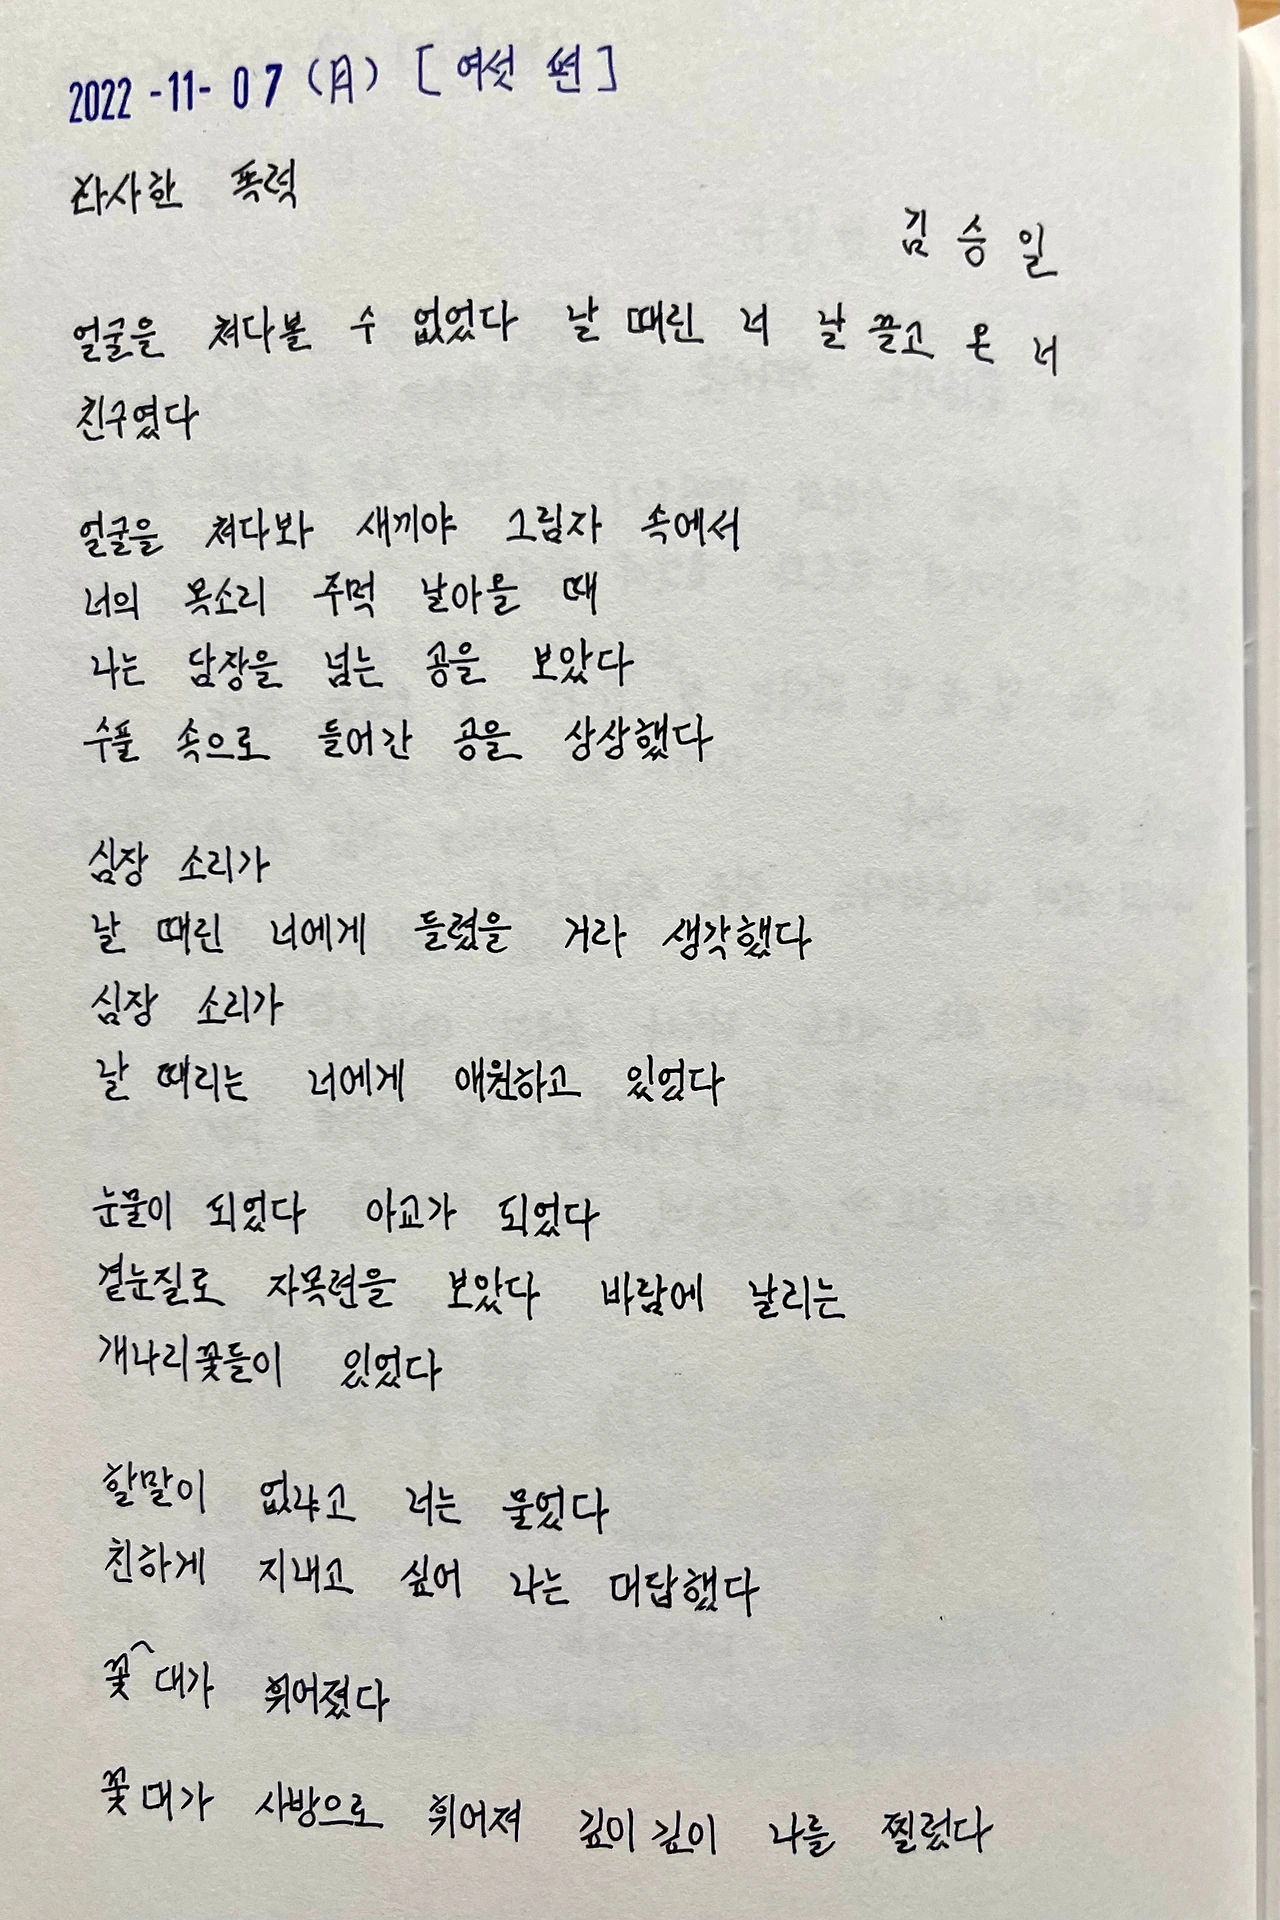 2022-11-07 (月) [여섯 편]
화사한 폭력
김승일
얼굴을 쳐다볼 수 없었다 날 때린 너 날 끌고 온 너
친구였다
얼굴을 쳐다봐 새끼야 그림자 속에서
너의 목소리 주먹 날아올 때
나는 담장을 넘는 공을 보았다
수풀 속으로 들어간 공을 상상했다
심장 소리가
날 때린 너에게 들렸을 거라 생각했다
심장 소리가
날 때리는 너에게 애원하고 있었다
눈물이 되었다 아교가 되었다
곁눈질로 자목련을 보았다 바람에 날리는
개나리꽃들이 있었다
할말이 없냐고 너는 물었다
친하게 지내고 싶어 나는 대답했다
꽃대가 휘어졌다
꽃대가 사방으로 휘어져 깊이 깊이 나를 찔렀다